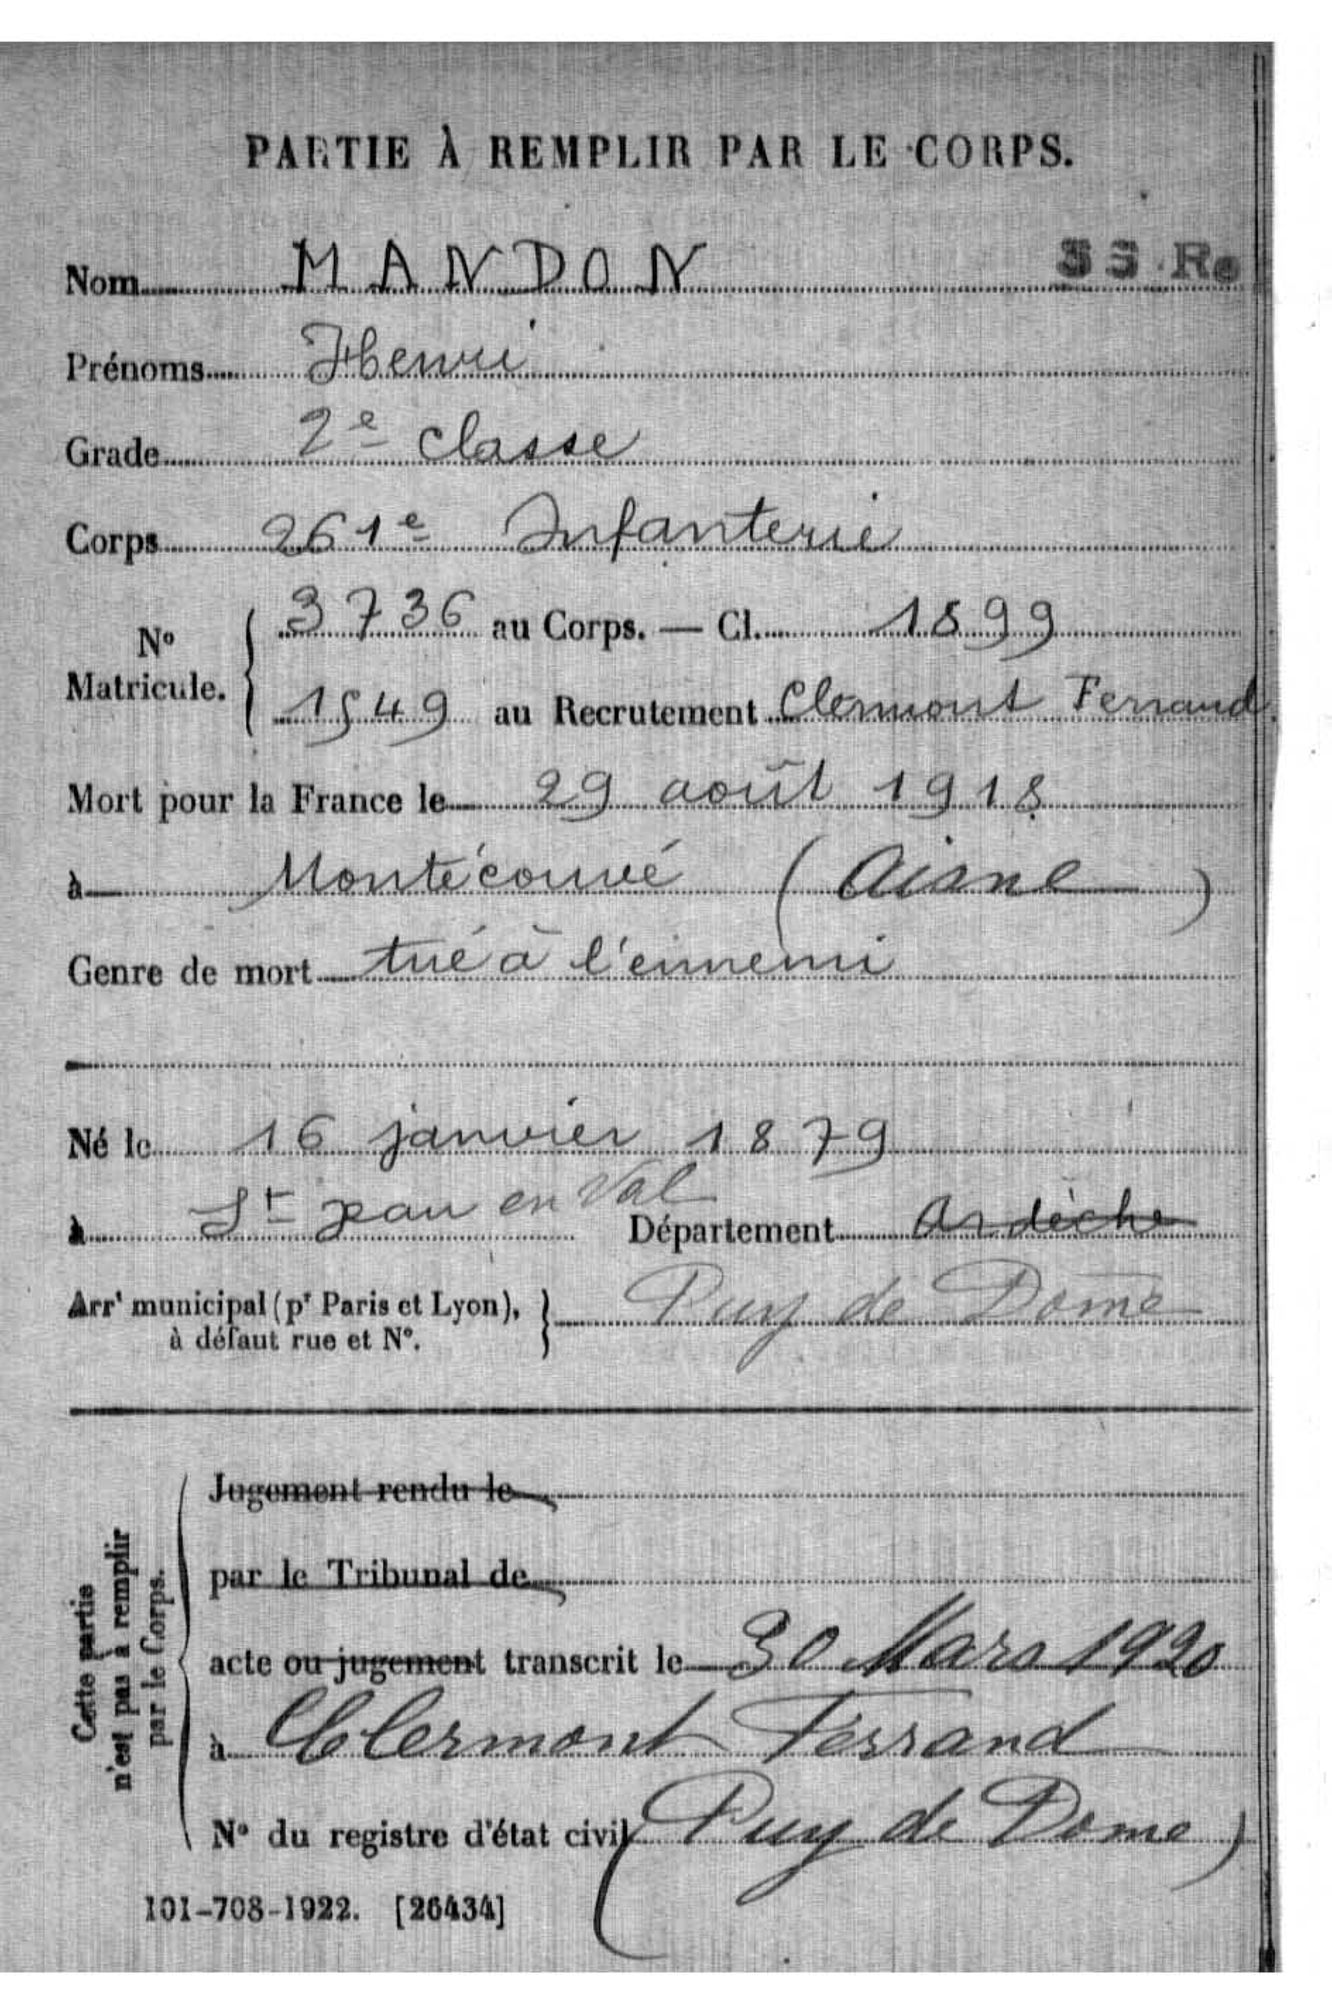 PARTIE À REMPLIR PAR LE CORPS.
Nom MANDON
Prénoms Henri
Grade 2e classe
Corps 261e Infanterie
3736 au Corps. — Cl. 1899
No Matricule.
1549 au Recrutement Clermont Ferrand
Mort pour la France le 29 août 1918
à Montécouvé (Aisne)
Genre de mort tué à l'ennemi
Né le 16 janvier 1879
à St Jean en Val Département Ardèche
Arrt municipal (pr Paris et Lyon), à défaut rue et No. Puy de Dome
Cette partie n'est pas à remplir par le Corps.
Jugement rendu le
par le Tribunal de
acte ou jugement transcrit le 30 Mars 1920
à Clermont Ferrand
No du registre d'état civil (Puy de Dome)
101-708-1922. [26434]